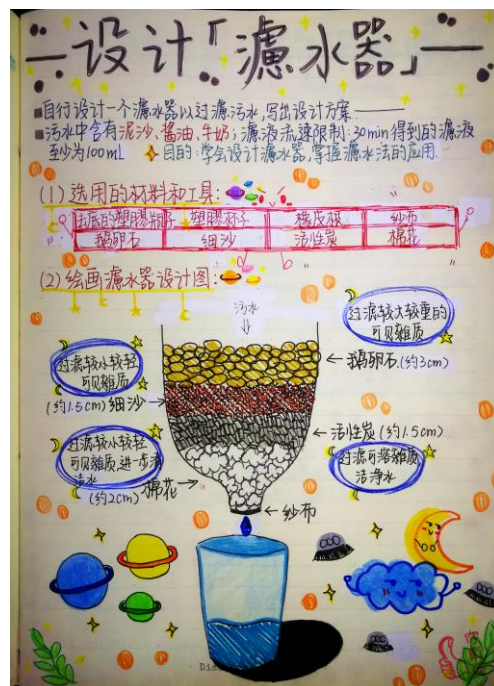 设计「濾水器」
自行设计一个濾水器以过濾污水,写出设计方案
污水中含有泥沙、酱油、牛奶;濾液流速限制:30min得到的濾液
至少为100mL 目的:学会设计濾水器,掌握濾水法的应用.
(1)选用的材料和工具:
去底的塑膠瓶子 塑膠杯子 橡皮根 纱布
鹅卵石 细沙 活性炭 棉花
(2)绘画濾水器设计图:
污水
过濾较大较重的
可见雜质
鹅卵石(约3cm)
过濾较小较轻
可见雜质
(约1.5cm)细沙
活性炭(约1.5cm)
过濾较小较轻
可见雜质,进一步清
洁水
过濾可溶雜质
洁净水
(约2cm)棉花
纱布